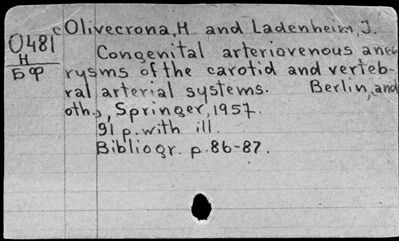 Olivecrona, H. and Ladenheim, J.
O481
Н
БФ
Congenital arteriovenous aneu
rysms of the carotid and verteb-
ral arterial systems. Berlin, and
oth., Springer, 1957.
91 p. with ill.
Bibliogr. p. 86-87.